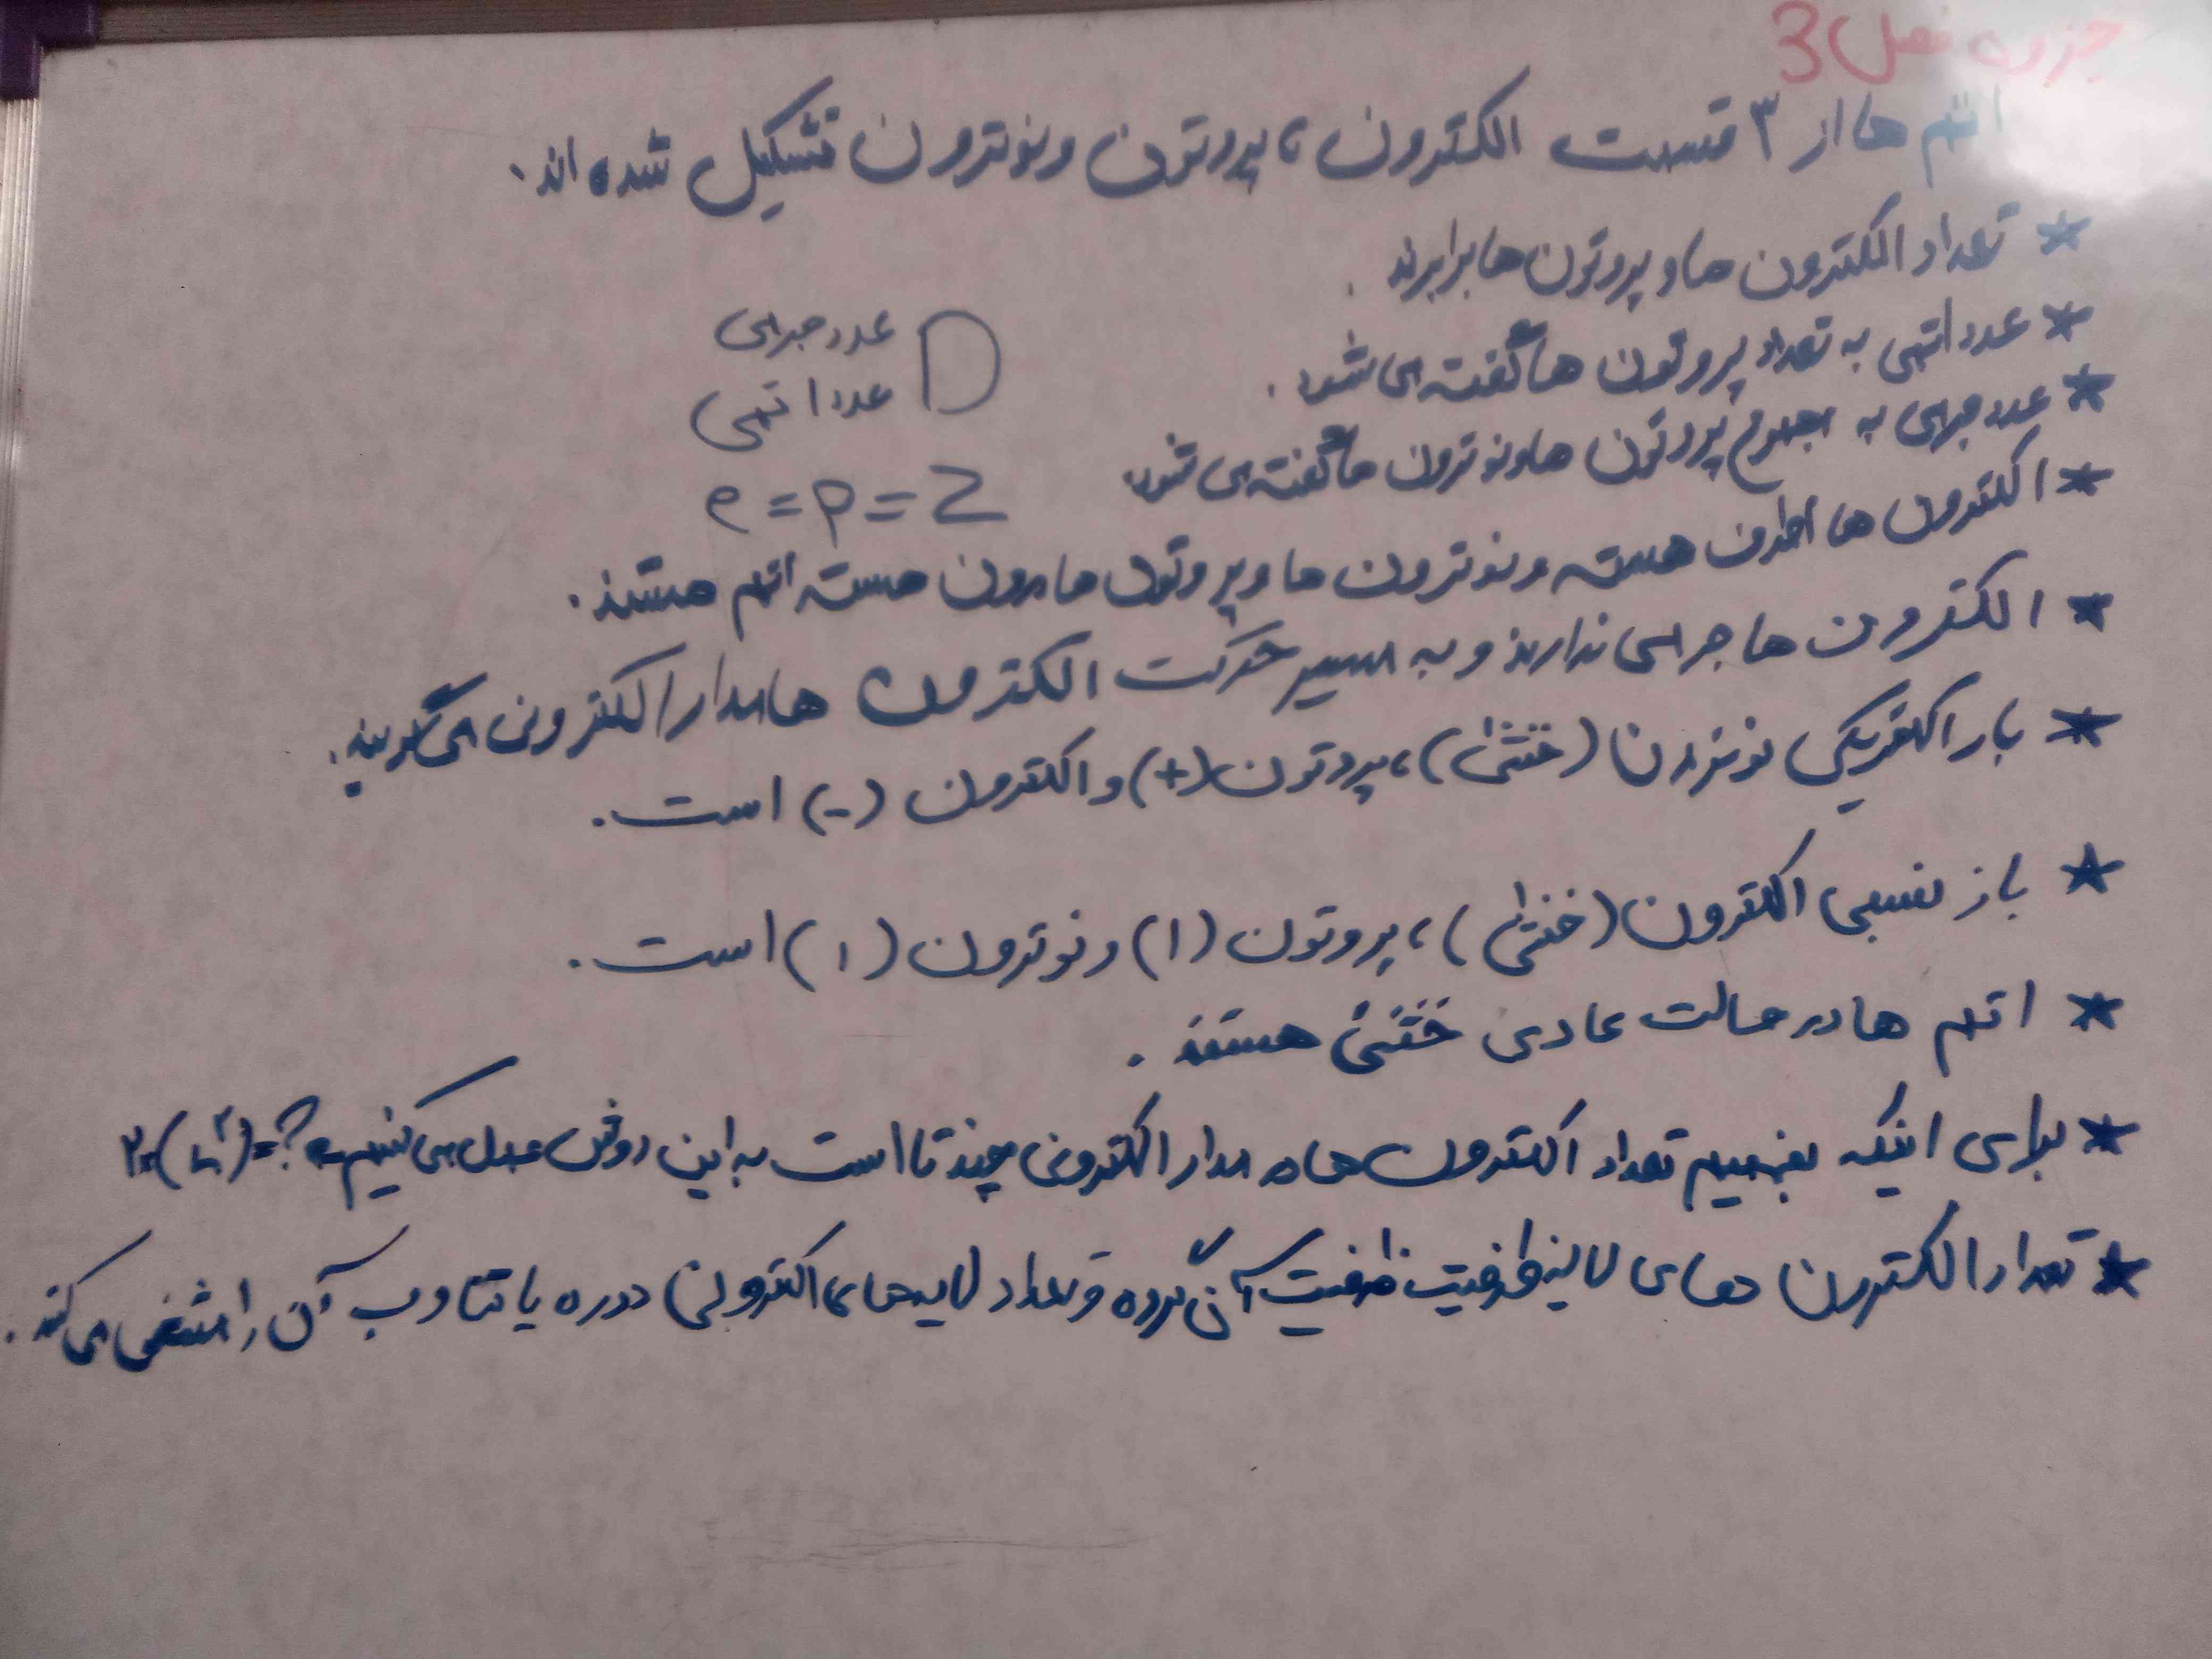 جزوه فصل 3
اتم ها از ۳ قسمت الکترون ، پروتون و نوترون تشکیل شده اند.
* تعداد الکترون ها و پروتون ها برابرند.
* عدد اتمی به تعداد پروتون ها گفته می شود.
* عدد جرمی به مجموع پروتون ها و نوترون ها گفته می شود
عدد جرمی
عدد اتمی
D
e = p = Z
* الکترون ها اطراف هسته و نوترون ها و پروتون ها درون هسته اتم هستند.
* الکترون ها جرمی ندارند و به مسیر حرکت الکترون ها مدار الکترونی می گویند.
* بار الکتریکی نوترون (خنثی) ، پروتون (+) و الکترون (-) است.
* باز نسبی الکترون (خنثی) ، پروتون (۱) و نوترون (۱) است.
* اتم ها در حالت عادی خنثی هستند.
* برای اینکه بفهمیم تعداد الکترون ها در مدار الکترونی چند تا است به این روش عمل می کنیم
* تعداد الکترون های لایه ظرفیت ظرفیت آن گروه و تعداد لایه های الکترونی دوره یا تناوب آن را مشخص می کند.